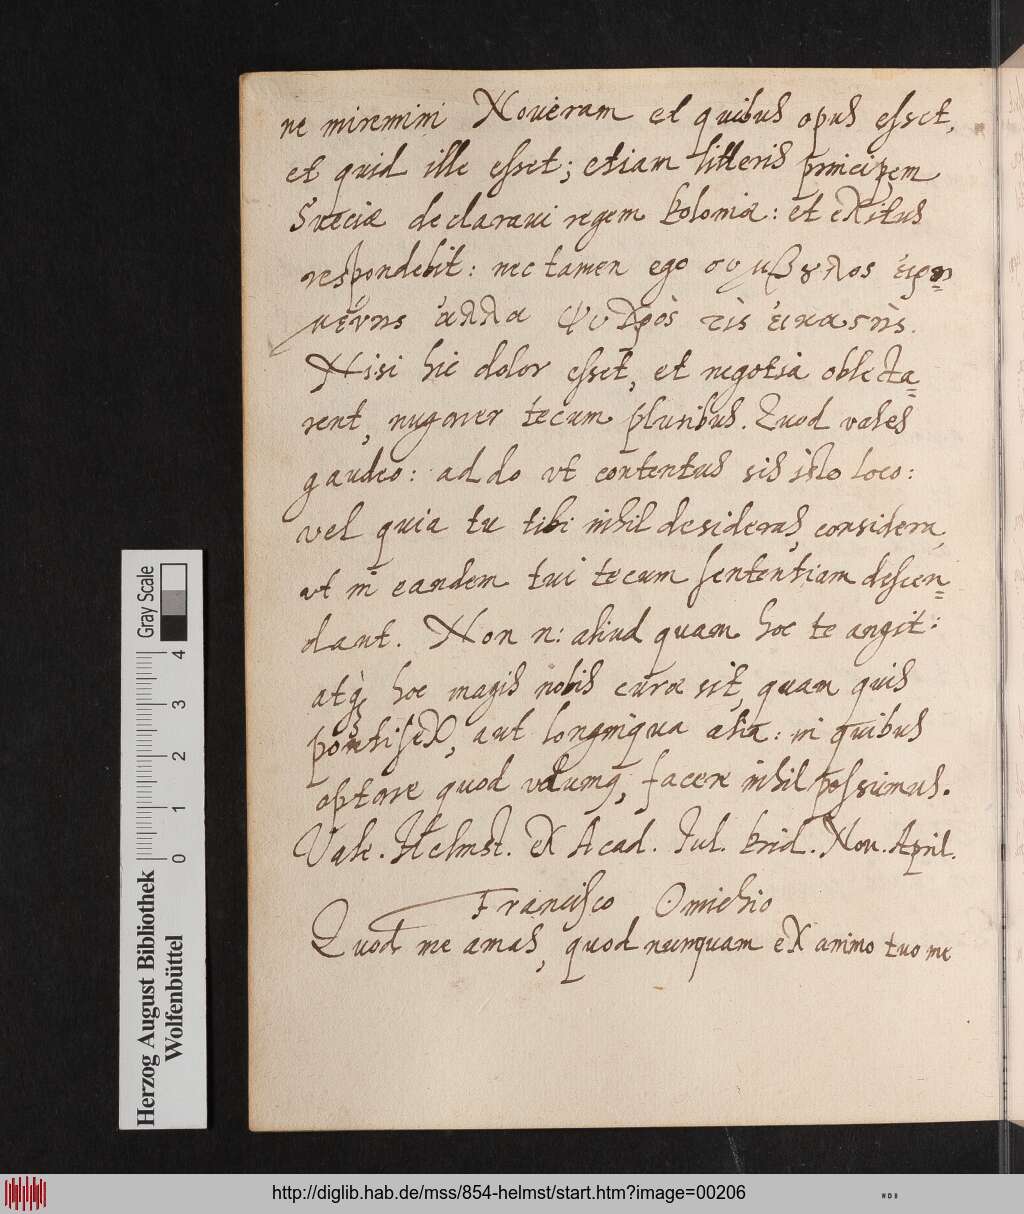 ne miremini Noueram et quibus opus esset,
et quid ille esset; etiam litteris principem
Sueciæ declaraui regem Poloniæ: et exitus
respondebit: nec tamen ego συμβουλος
μένης ἀλλα ψυδρὸς τὶς εἰκαστὴς.
Nisi hic dolor esset, et negotia oblecta=
rent, nugarer tecum pluribus. Quod vales
gaudeo: addo vt contentus sis isto loco:
vel quia tu tibi nihil desideras, considera,
vt in eandem tui tecum sententiam descen=
dant. Non n: aliud quam hoc te angit:
atq; hoc magis nobis curæ sit, quam quis
pontifex, aut longinqua alia: in quibus
optare quod volumq, facere nihil possumus.
Vale. Helmst. ex Acad. Iul. Prid. Non. April.
Francisco Omichio
Quod me amas, quod nunquam ex animo tuo me
Herzog August Bibliothek
Wolfenbüttel
Gray Scale
0 1 2 3 4
http://diglib.hab.de/mss/854-helmst/start.htm?image=00206